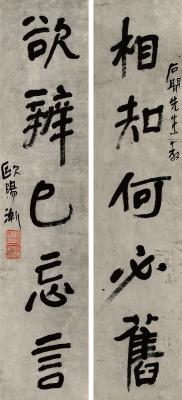 石鄀先生雅教
相知何必舊
欲辨已忘言
歐陽漸